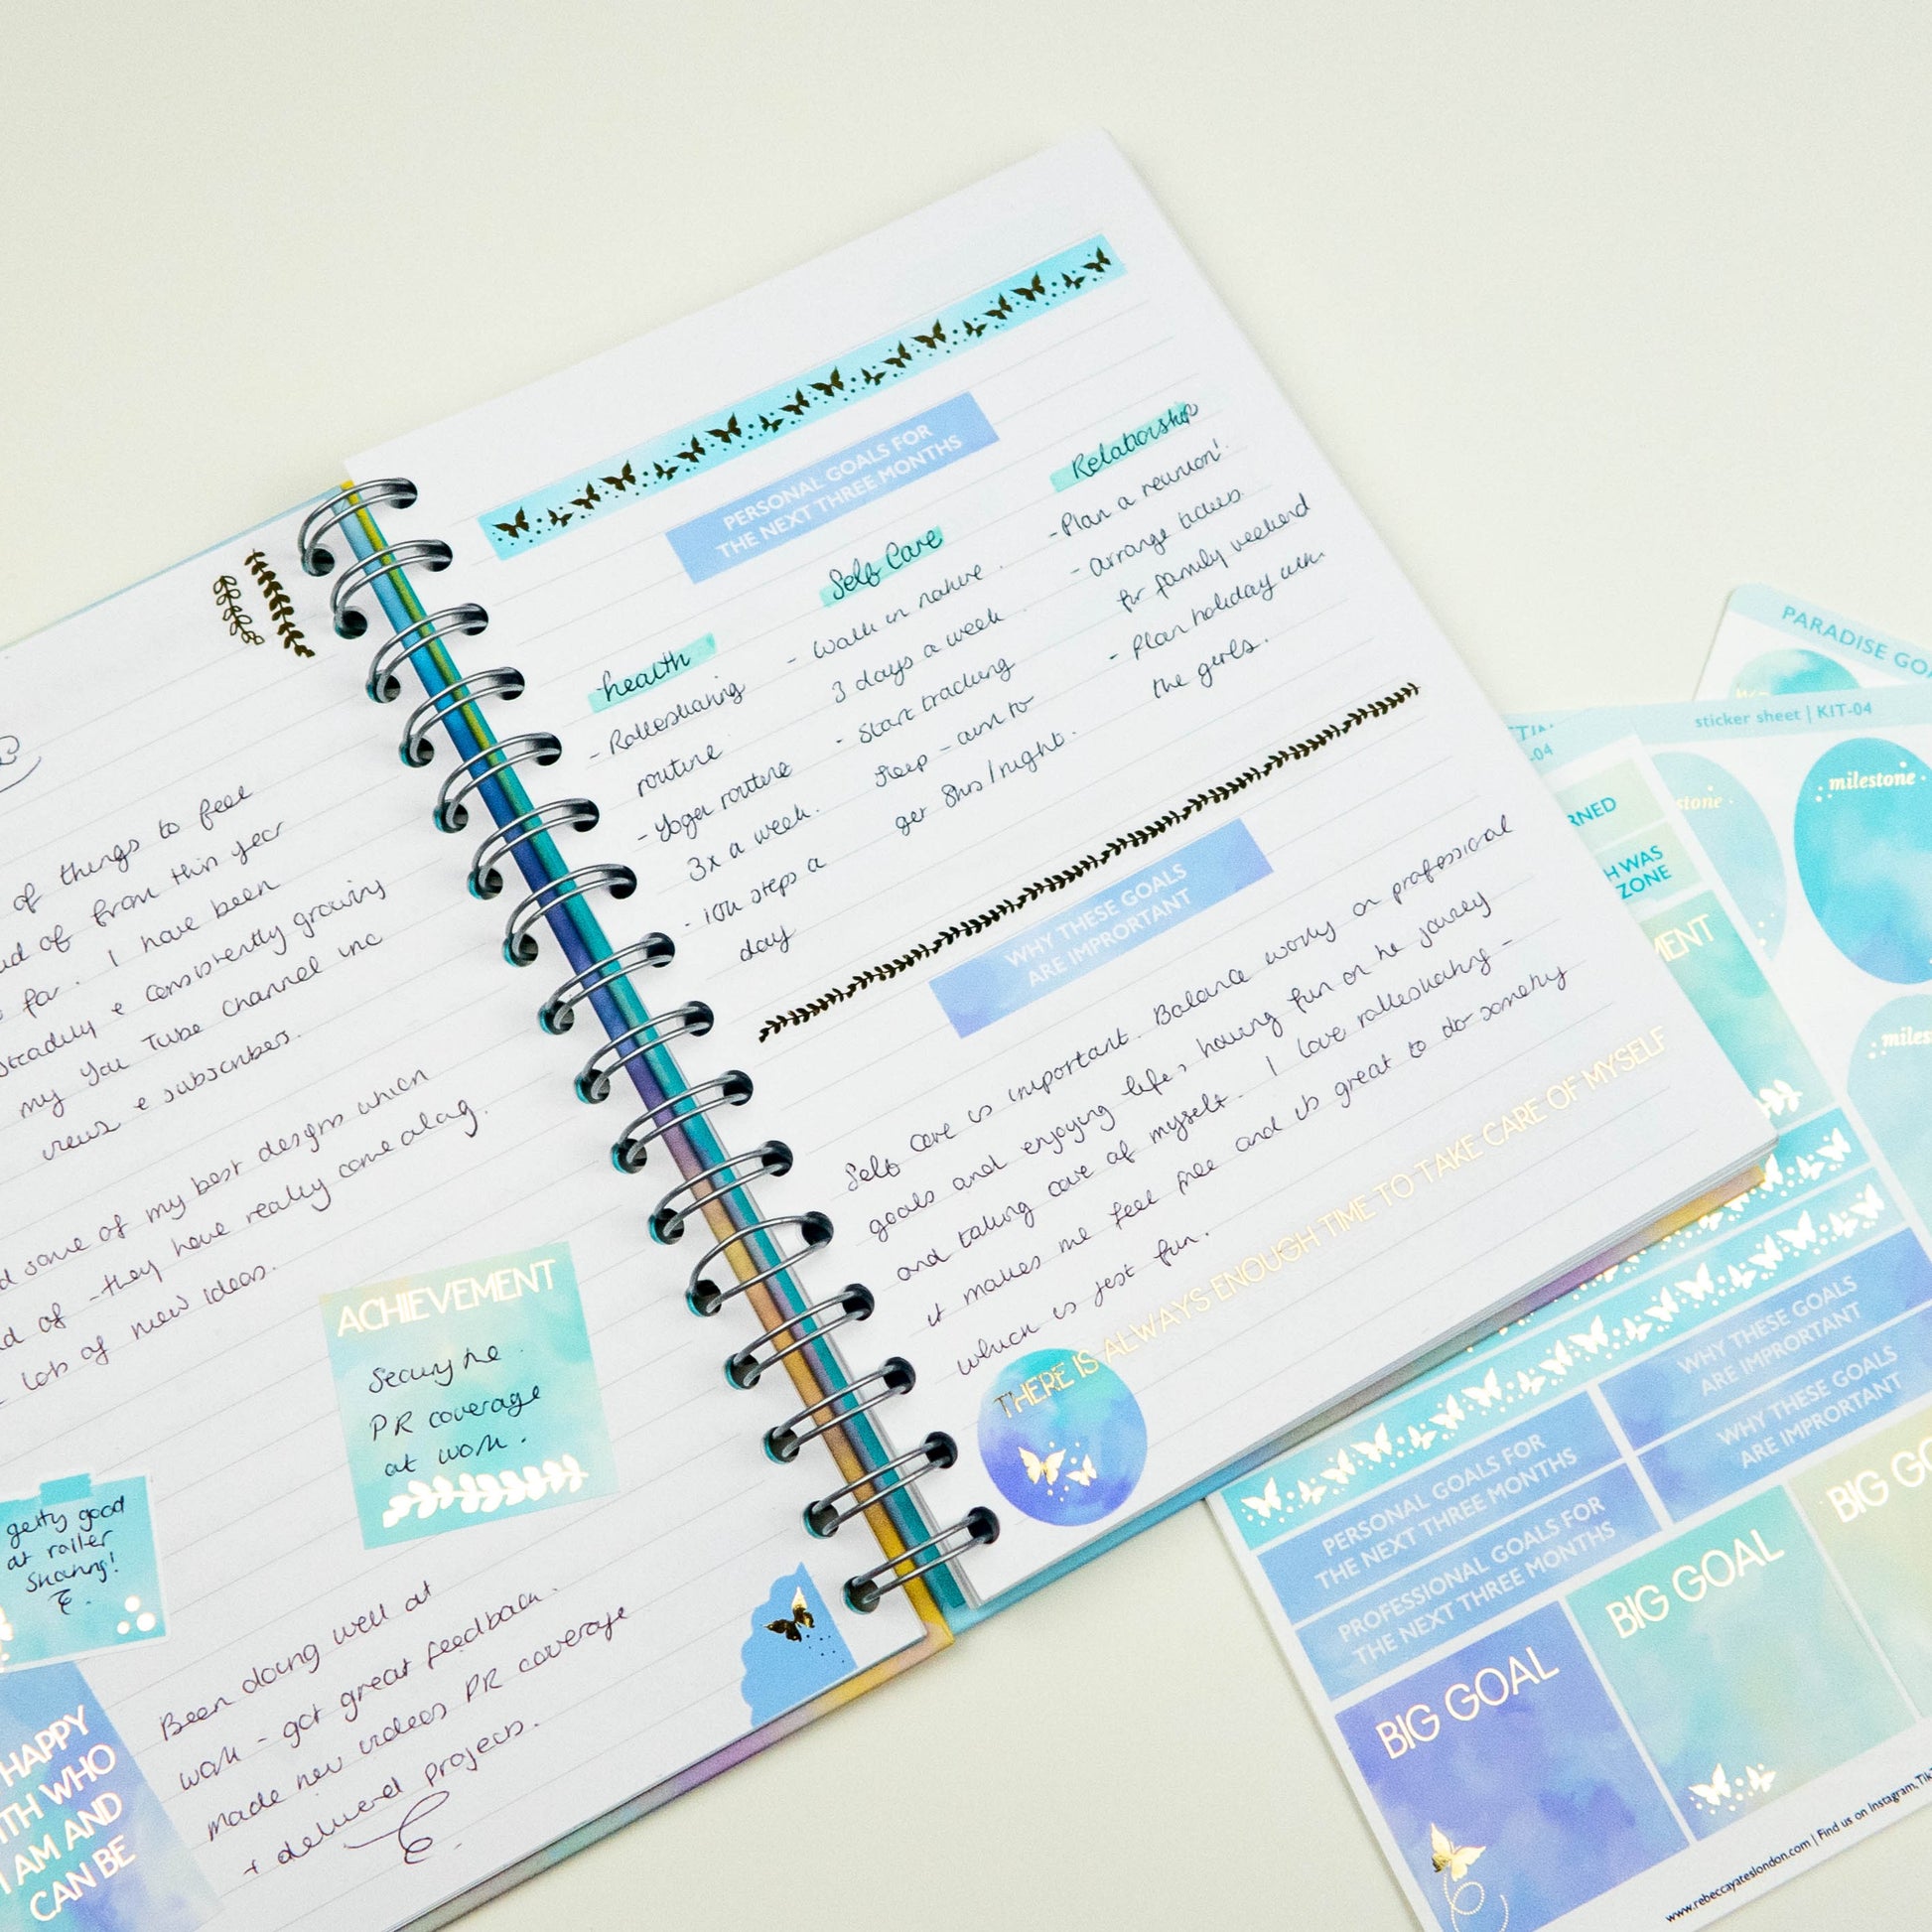 of things to feel
of from this year
far. I have been
steadily & consistently growing
my You Tube Channel inc
views & subscribers.
some of my best designs which
of - they have really come along.
lots of new ideas.
ACHIEVEMENT
Securing the
PR coverage
at work.
getting good
at roller
Skating!
HAPPY
WITH WHO
I AM AND
CAN BE
Been doing well at
work - got great feedback.
made new videos PR coverage
+ delivered projects.
PERSONAL GOALS FOR
THE NEXT THREE MONTHS
health
- Rolleskating
routine
- Yoga routine
3x a week.
- 10k steps a
day
Self Care
- Walk in nature.
3 days a week.
- Start tracking
sleep - aim to
get 8hrs/night.
Relationship
- Plan a reunion!
- arrange tickets
for family weekend
- Plan holiday with
the girls.
WHY THESE GOALS
ARE IMPRORTANT
Self care is important. Balance work or professional
goals and enjoying life, having fun on the journey
and taking care of myself. I love rolleskating -
it makes me feel free and its great to do something
which is just fun.
THERE IS ALWAYS ENOUGH TIME TO TAKE CARE OF MYSELF
PARADISE
sticker sheet | KIT-04
-04
milestone
stone
miles
RNED
H WAS
ZONE
MENT
WHY THESE GOALS
ARE IMPRORTANT
WHY THESE GOALS
ARE IMPRORTANT
PERSONAL GOALS FOR
THE NEXT THREE MONTHS
PROFESSIONAL GOALS FOR
THE NEXT THREE MONTHS
BIG GOAL
BIG GOAL
BIG GO
www.rebeccayateslondon.com | Find us on Instagram, Tik